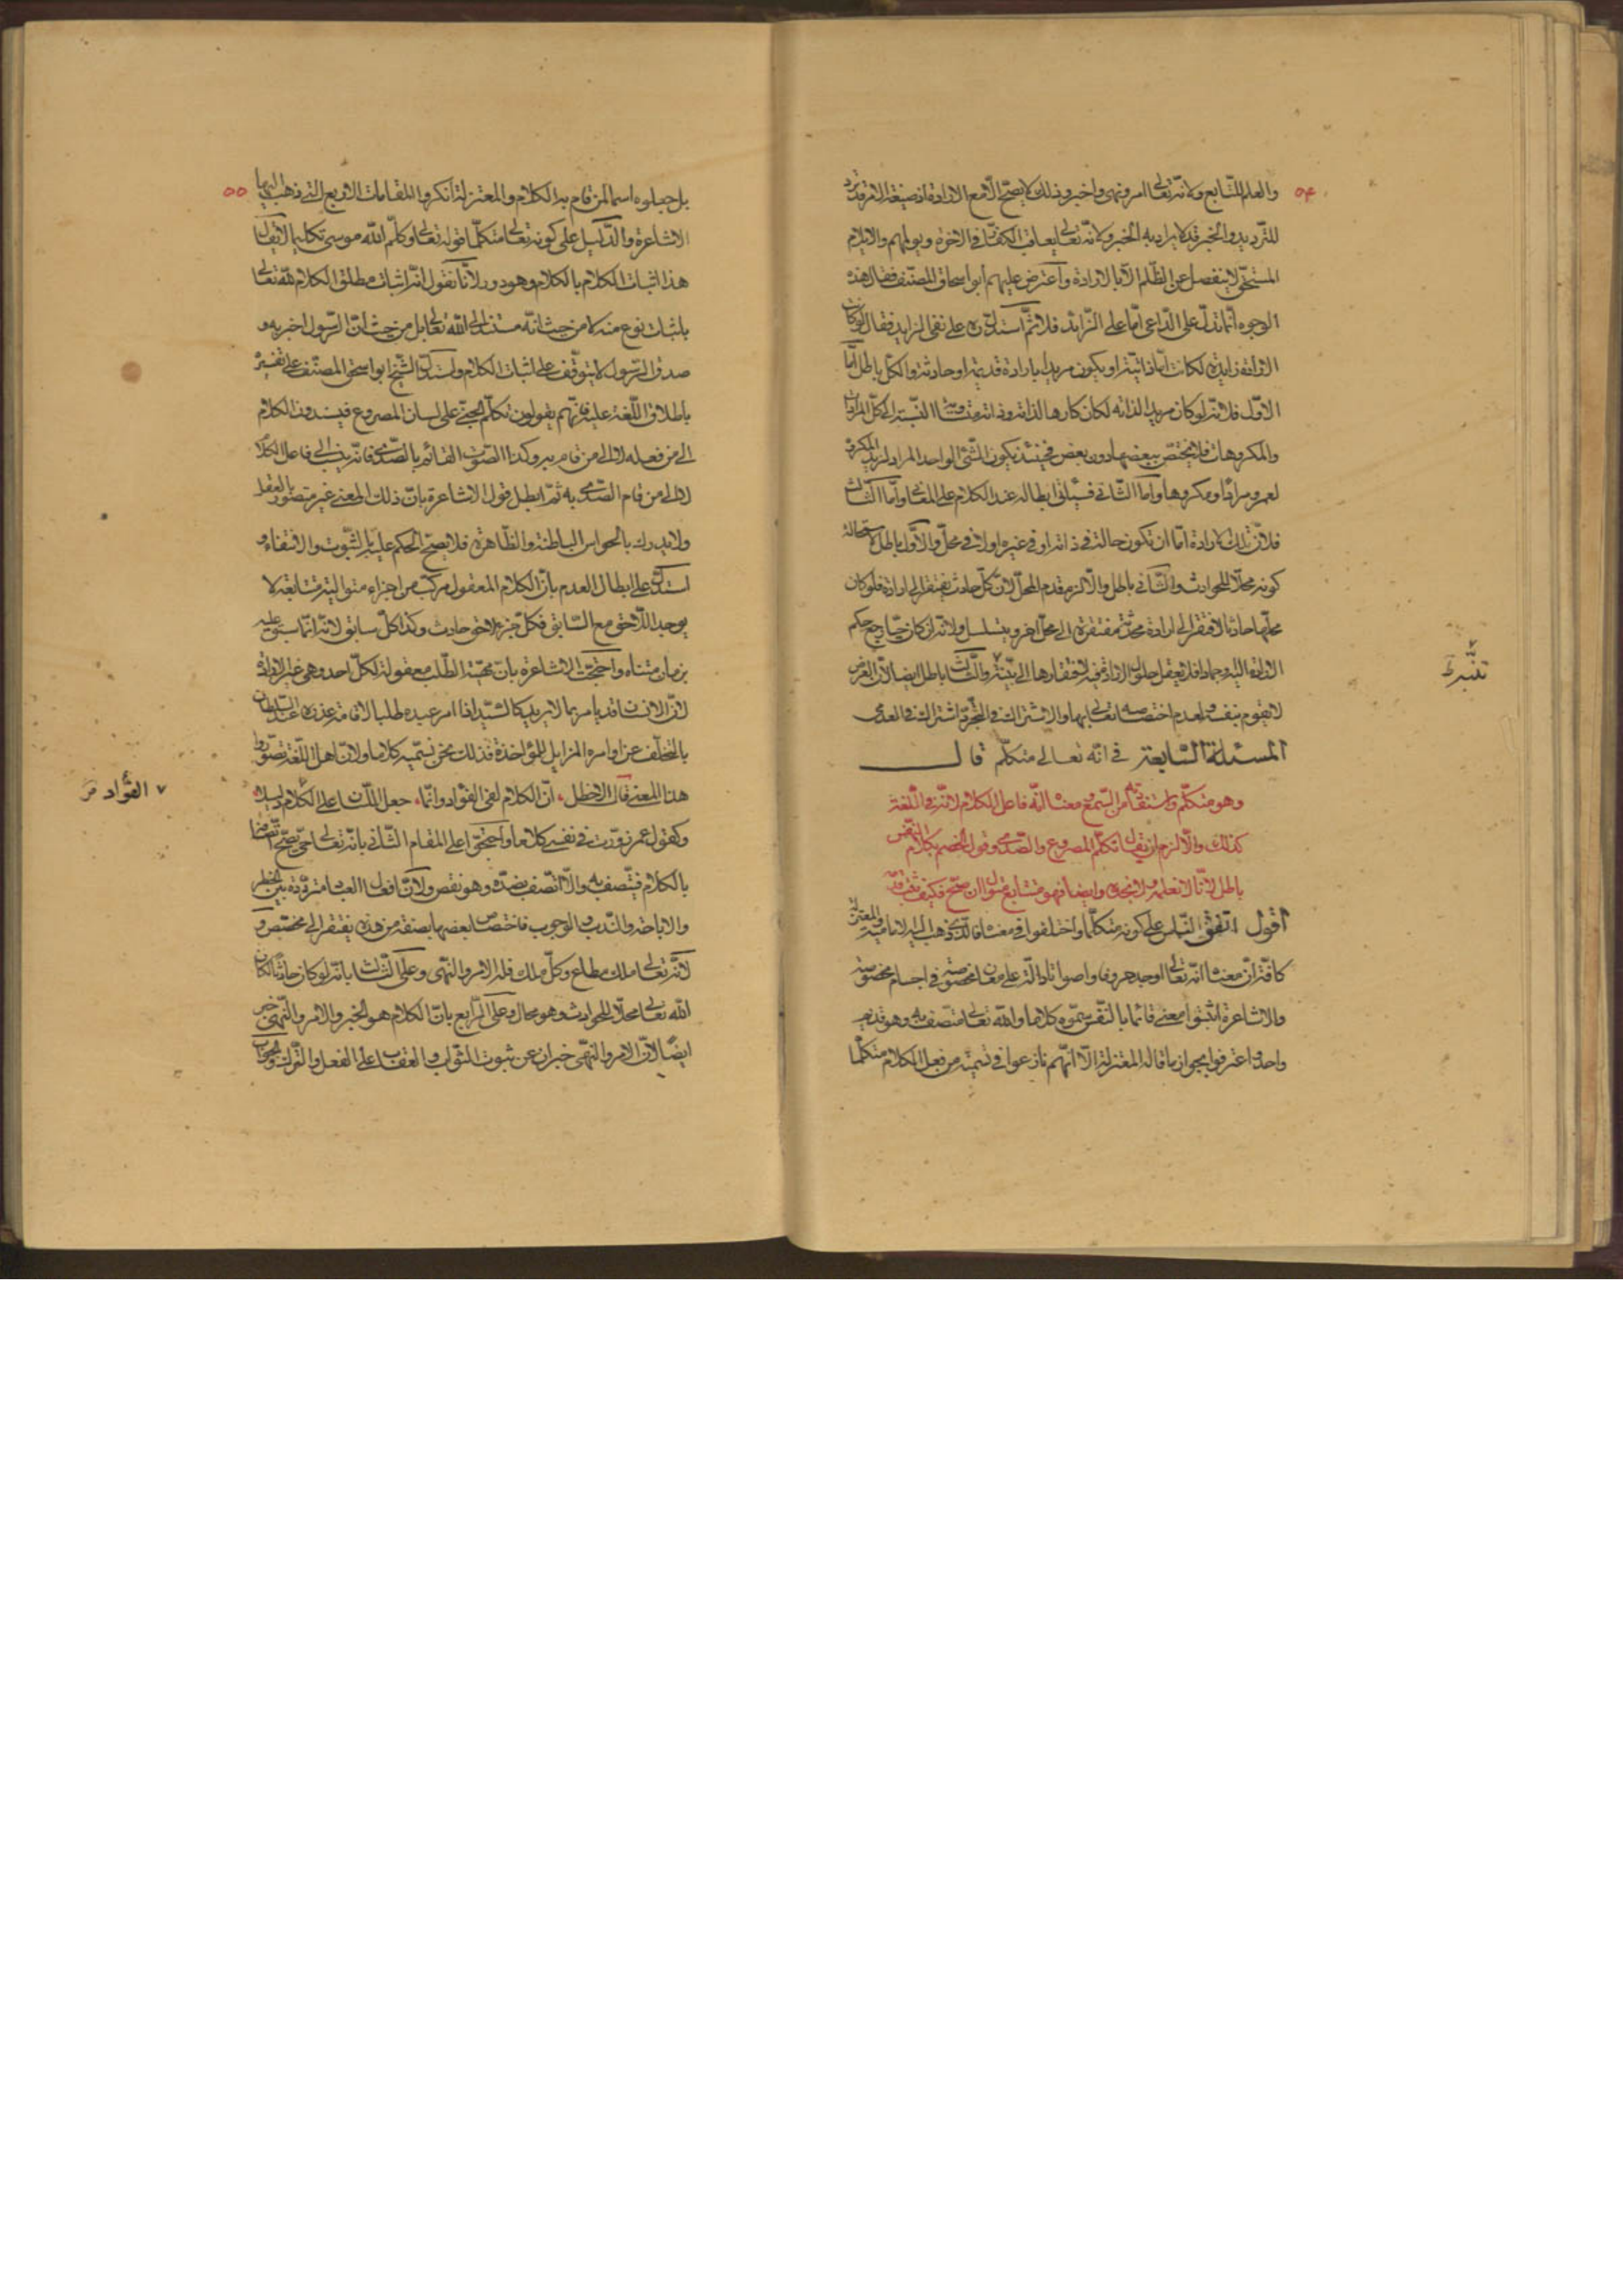 ٥٤
والعلم للتّابع ولانّه تعالى امر ونهى واخبر وذلك لا يصحّ الّا مع الارادة اذ صيغة الامر قد ترد
للتّهديد والخبر قد لا يراد به الخبر ولانّه تعالى يعاقب الكفّار فى الاخرة ويولمهم والايلام
المستحقّ لا ينفصل عن الظّلم الّا بالارادة واعترض عليهم ابو اسحاق المصنّف فقال هذه
الوجوه انّما تدلّ على الدّاعى امّا على الزّايد فلا ثمّ استدلّ ره على نفى الزايد فقال لو كانت
الارادة زايدة لكانت امّا ذاتيّة او يكون مريدا بارادة قديمة او حادثة والكلّ باطل امّا
الاوّل فلانّه لو كان مريدا لذاته لكان كارها لذاته وذاته متساوية النّسبة الى كلّ المرادات
والمكروهات فلا يختصّ ببعضها دون بعض فحينئذ يكون الشّئ الواحد المراد لزيد المكروه
لعمرو مرادا ومكروها وامّا الثّانى فسيأتى ابطاله عند الكلام على المعانى وامّا الثّالث
فلانّ تلك الارادة امّا ان تكون حالّة فى ذاته او فى غيره او لا فى محلّ والاوّل باطل لاستحالة
كونه محلّا للحوادث والثّانى باطل والّا لزم قدم المحلّ لانّ كلّ حادث يفتقر الى ارادة فلو كان
محلّها حادثا لافتقر الى ارادة محدثة مفتقرة الى محلّ اخر ويتسلسل ولانّه ان كان حيّا رجع حكم
الارادة اليه وجمادا فلا يعقل حلول الارادة فيه لافتقارها الى بنية والثّالث باطل ايضا لانّ العرض
لا يقوم بنفسه ولعدم اختصاصه تعالى بها والاشتراك فى التّجرّد اشتراك فى العدمى
المسئلة السّابعة فى انّه تعالى متكلّم قال
وهو متكلّم واستفدناه من السّمع ومعناه انّه فاعل الكلام لانّه فى اللّغة
كذلك والّا لزم ان يقال تكلّم المصروع والصّدى وقول الخصم بكلام النّفس
باطل لانّا لا نعلمه ولا نجده وايضا فهو متتابع متوال ان صحّ فكيف يثبت قدمه
اقول اتّفق النّاس على كونه متكلّما واختلفوا فى معناه فالّذى ذهب اليه الاماميّة والمعتزلة
كافّة انّ معناه انّه تعالى اوجد حروفا واصواتا دالّة على معان مخصوصة فى اجسام مخصوصة
والاشاعرة اثبتوا معنى قائما بالنّفس سمّوه كلاما والله تعالى متّصف به وهو قديم
واحد واعترفوا بجواز ما قاله المعتزلة الّا انّهم نازعوا فى تسمية من فعل الكلام متكلّما
٥٥
بل جعلوه اسما لمن قام به الكلام والمعتزلة انكروا المقامات الاربع الّتى ذهب اليها
الاشاعرة والدّليل على كونه تعالى متكلّما قوله تعالى وكلّم الله موسى تكليما لا يقال
هذا اثبات الكلام بالكلام وهو دور لانّا نقول انّه اثبات مطلق الكلام لله تعالى
باثبات نوع منه لا من حيث انّه مستند الى الله تعالى بل من حيث انّ الرّسول اخبر به و
صدق الرّسول لا يتوقّف على اثبات الكلام واستدلّ الشّيخ ابو اسحق المصنّف على تفسيره
باطلاق اللّغة عليه فانّهم يقولون تكلّم الجنّى على لسان المصروع فيسندون الكلام
الى من فعله لا الى من قام به وكذا الصّوت القائم بالصّدى فانّه ينسب الى فاعل الكلام
لا الى من قام الصّدى به ثمّ ابطل قول الاشاعرة بانّ ذلك المعنى غير متصوّر بالعقل
ولا يدرك بالحواس الباطنة والظّاهرة فلا يصحّ الحكم عليه بالثّبوت والانتفاء و
استدلّ على ابطال القدم بانّ الكلام المعقول مركّب من اجزاء متوالية متتابعة لا
يوجد اللّاحق مع السّابق فكلّ جزء لاحق حادث وكذا كلّ سابق لانّه انّما سبق عليه
بزمان متناه واحتجّت الاشاعرة بانّ محبّة الطّلب معقولة لكلّ احد وهى غير الارادة
لانّ الانسان قد يامر بما لا يريد كالسّيّد اذا امر عبيده طلبا لاقامة عذره عند السّلطان
بالتّخلّف عن اوامره المزايل للمؤاخذة فذلك نحن نسمّيه كلاما ولانّ اهل اللّغة تصوّروا
هذا المعنى قال الاخطل انّ الكلام لفى الفؤاد وانّما جعل اللّسان على الكلام دليلا
وكقول عمر زوّرت فى نفسى كلاما واحتجّوا على المقام الثّانى بانّه تعالى حىّ يصحّ اتّصافه
بالكلام فيتّصف به والّا اتّصف بضدّه وهو نقص ولانّ افعال العباد متردّدة بين الحظر
والاباحة والنّدب والوجوب فاختصاص بعضها بصفة من هذه يفتقر الى مخصّص و
لانّه تعالى ملك مطاع وكلّ ملك فله الامر والنّهى وعلى الثّالث بانّه لو كان حادثا لكان
الله تعالى محلّا للحوادث وهو محال وعلى الرّابع بانّ الكلام هو الخبر والامر والنّهى خبر
ايضا لانّ الامر والنّهى خبران عن ثبوت الثّواب والعقاب على الفعل والتّرك والجواب
الفؤاد